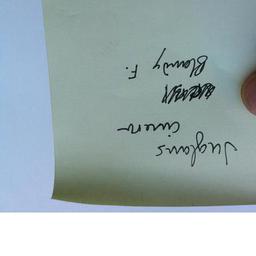 Juglans
ciner-
Blandy F.